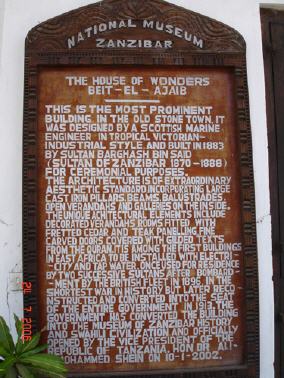 NATIONAL MUSEUM
ZANZIBAR
THE HOUSE OF WONDERS
BEIT-EL-AJAIB
THIS IS THE MOST PROMINENT
BUILDING IN THE OLD STONE TOWN, IT
WAS DESIGNED BY A SCOTTISH MARINE
ENGINEER IN TROPICAL VICTORIAN-
INDUSTRIAL STYLE AND BUILT IN 1883
BY SULTAN BARGHASH BIN SAID
(SULTAN OF ZANZIBAR 1870-1888)
FOR CEREMONIAL PURPOSES.
THE ARCHITECTURE IS OF EXTRAORDINARY
AESTHETIC STANDARD INCORPORATING LARGE
CAST IRON PILLARS, BEAMS, BALUSTRADES,
OPEN VERANDAHS AND GALLERIES ON THE INSIDE.
THE UNIQUE ACHITECTURAL ELEMENTS INCLUDE
DECORATED VERANDAHS ROOMS FITTED WITH
FRETTED CEDAR AND TEAK PANELLING FINE
CARVED DOORS COVERED WITH GILDED TEXTS
FROM THE QURAN. IT IS AMONG THE FIRST BUILDINGS
IN EAST AFRICA TO BE INSTALLED WITH ELECTRI-
-CITY AND TAP WATER. ONCE USED FOR RESIDENCE
BY TWO SUCCESSIVE SULTANS AFTER BOMBARD-
-MENT BY THE BRITISH FLEET IN 1896, IN THE
SHORTEST WAR IN HISTORY BUT LATER RECO
-NSTRUCTED AND CONVERTED INTO THE SEAT
OF THE ENTIRE GOVERNMENT IN 1913. THE
GOVERNMENT HAS CONVERTED THE BUILDING
INTO THE MUSEUM OF ZANZIBAR HISTORY
AND SWAHILI CIVILIZATION AND OFFICIALLY
OPENED BY THE VICE PRESIDENT OF THE
REPUBLIC OF TANZANIA, HON. DR ALI-
MOHAMMED SHEIN ON 10-1-2002.
24 7 2006